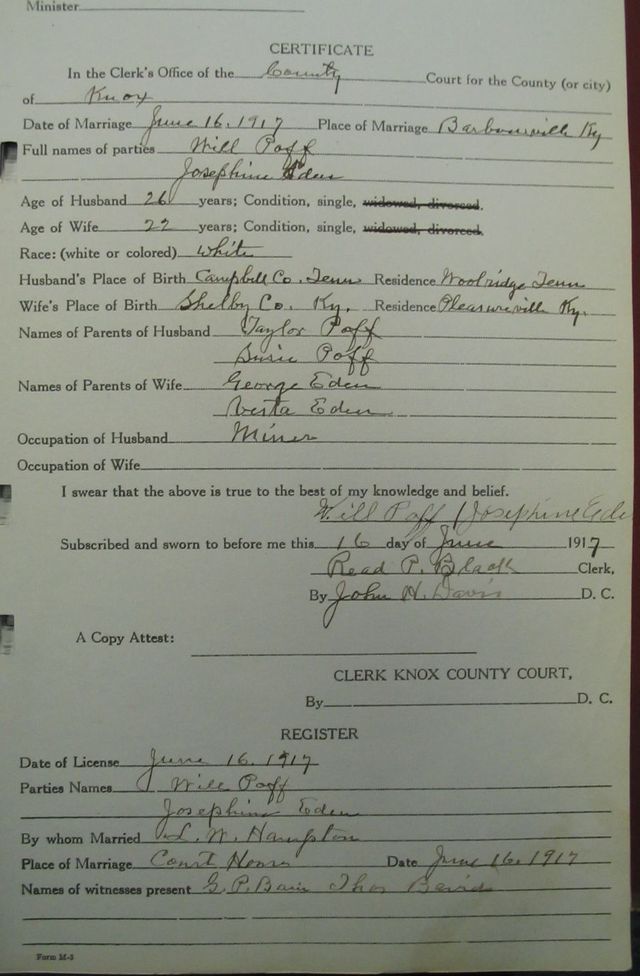 Minister
CERTIFICATE
In the Clerk's Office of the County Court for the County (or city)
of Knox
Date of Marriage June 16, 1917 Place of Marriage Barbourville Ky
Full names of parties Will Poff
Josephine Eden
Age of Husband 26 years; Condition, single, widowed, divorced.
Age of Wife 22 years; Condition, single, widowed, divorced.
Race: (white or colored) White
Husband's Place of Birth Campbell Co. Tenn Residence Woolridge Tenn
Wife's Place of Birth Shelby Co. Ky. Residence Pleasureville Ky.
Names of Parents of Husband Taylor Poff
Susie Poff
Names of Parents of Wife George Eden
Vesta Eden
Occupation of Husband Miner
Occupation of Wife
I swear that the above is true to the best of my knowledge and belief.
Will Poff / Josephine Ede
Subscribed and sworn to before me this 16 day of June 1917
Read P. Black Clerk,
By John H. Davis D. C.
A Copy Attest:
CLERK KNOX COUNTY COURT,
By D. C.
REGISTER
Date of License June 16, 1917
Parties Names Will Poff
Josephine Eden
By whom Married L. W. Hampton
Place of Marriage Court House Date June 16, 1917
Names of witnesses present G. P. Bain Thos
Form M-3